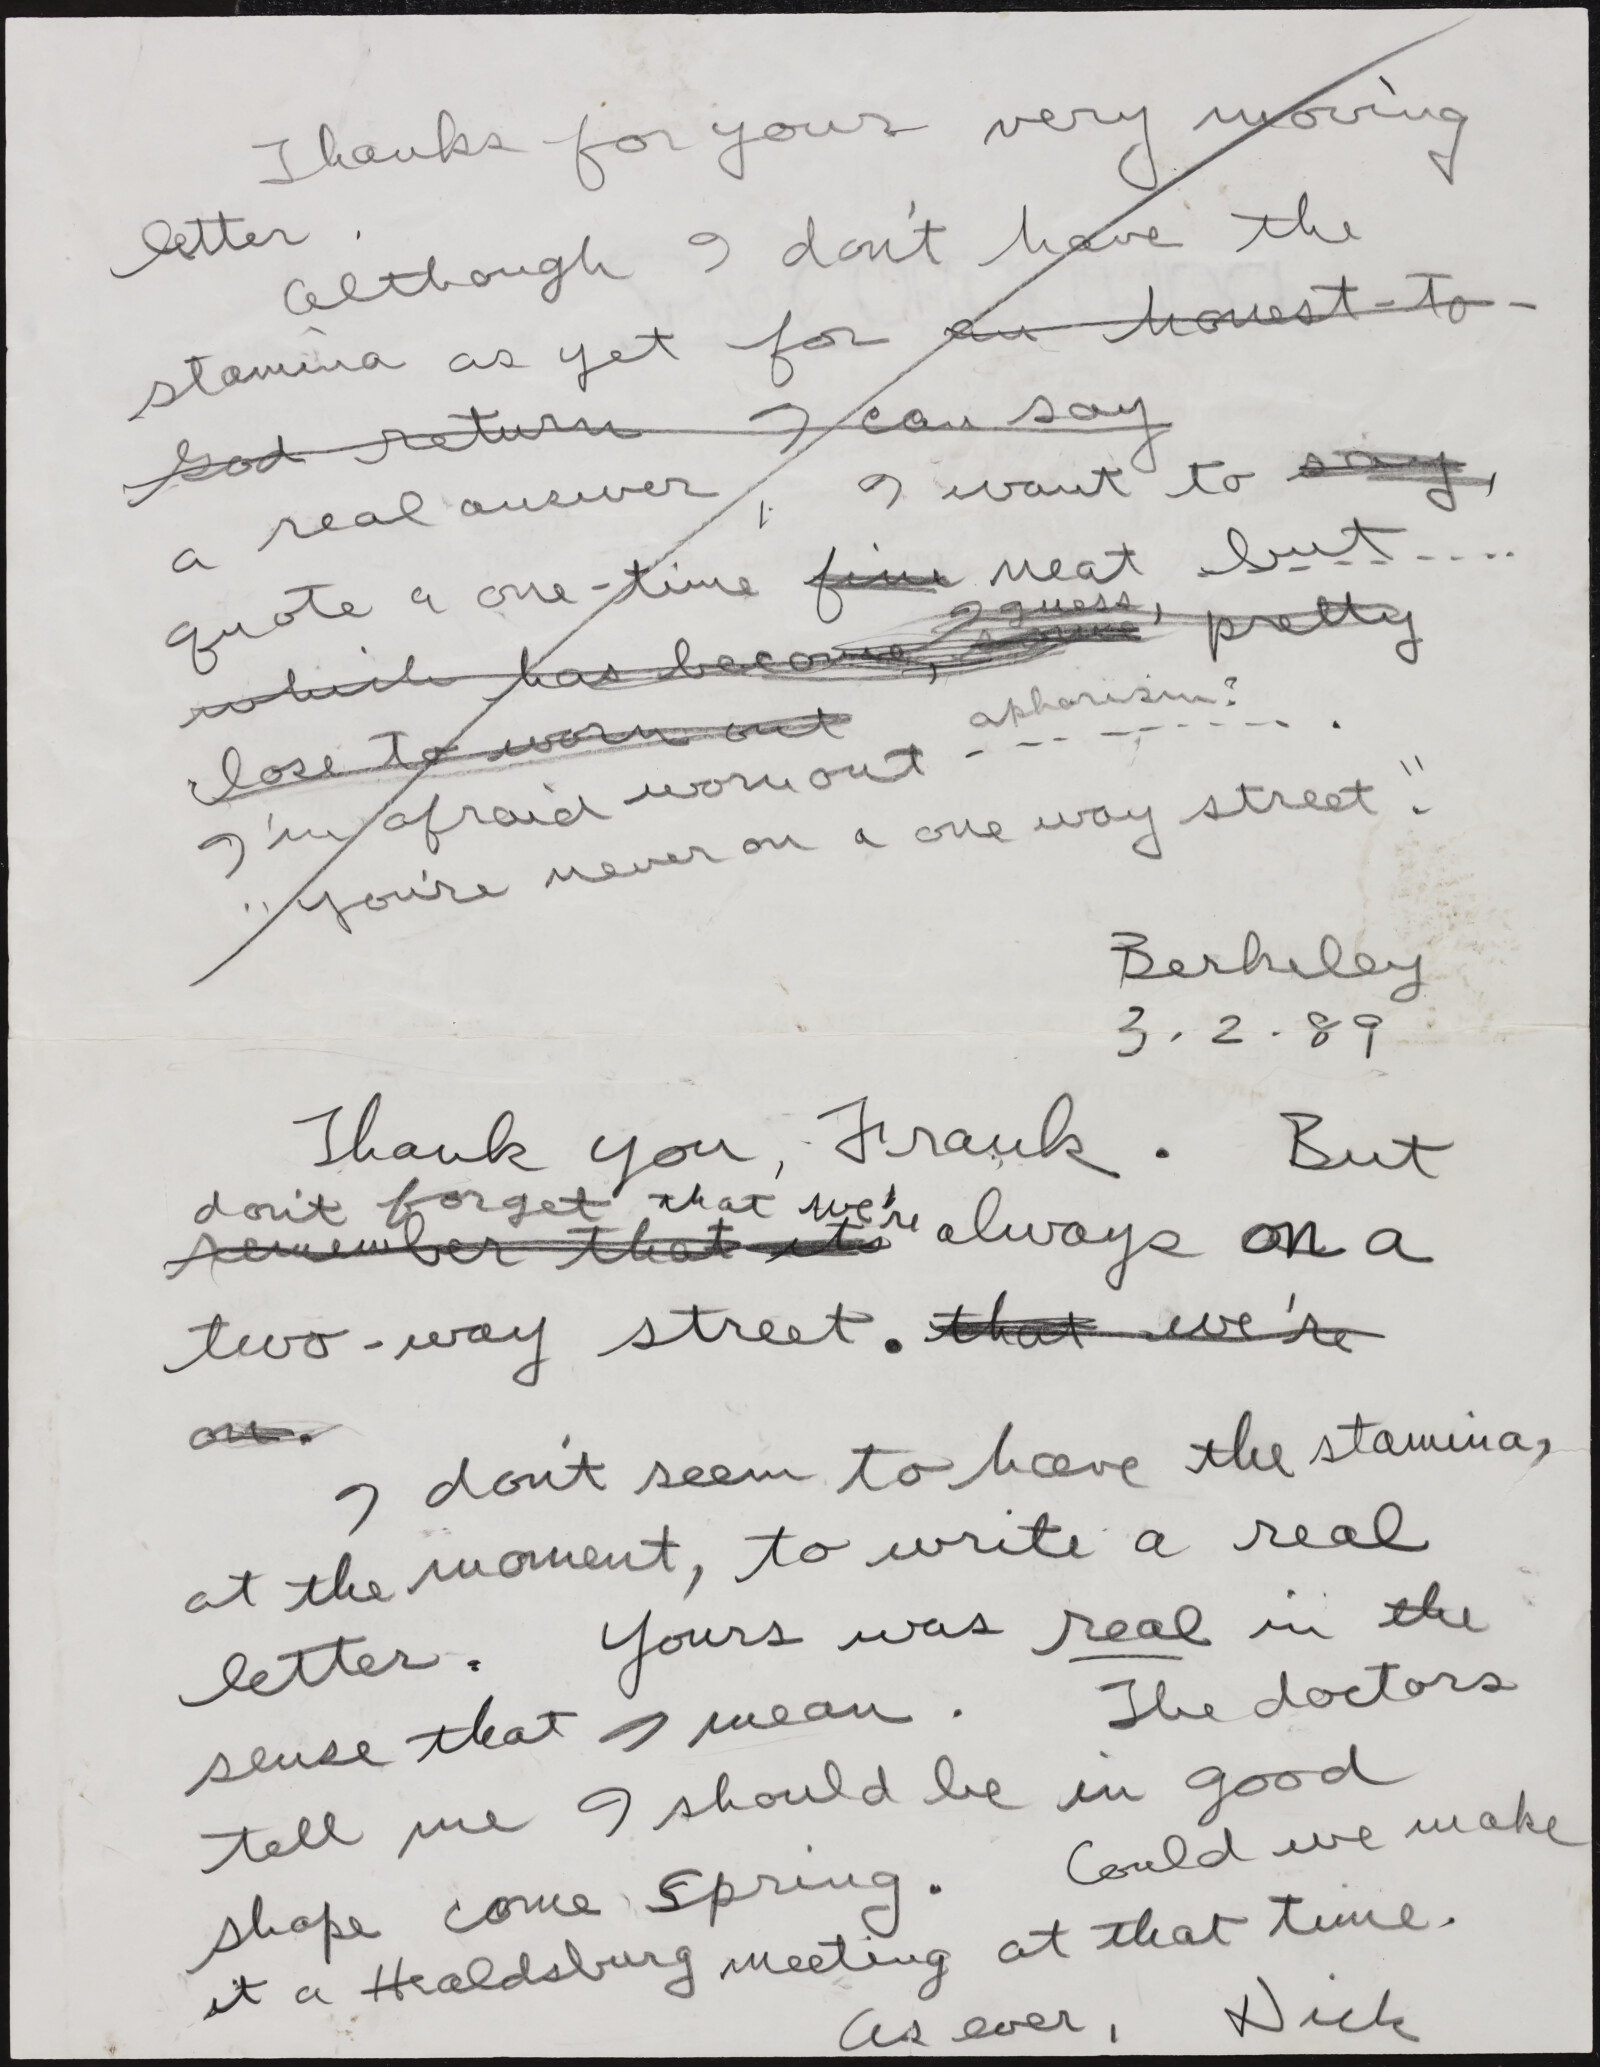 Thanks for your very moving
letter.
Although I don't have the
stamina as yet for an honest-to-
God return I can say
a real answer, I want to say,
quote a one-time fine neat but ....
I guess,
which has become, pretty
close to worn out
aphorism?
I'm afraid worn out - - - - - - - .
"You're never on a one way street".
Berkeley
3.2.89
Thank you, Frank. But
don't forget that we're
remember that its always on a
two-way street. that we're
on.
I don't seem to have the stamina,
at the moment, to write a real
letter. Yours was real in the
sense that I mean. The doctors
tell me I should be in good
shape come Spring. Could we make
it a Healdsburg meeting at that time.
As ever, Dick